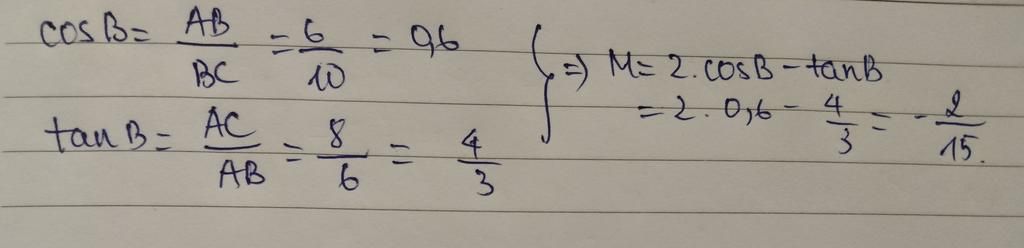 cosB = AB/BC = 6/10 = 0,6
tanB = AC/AB = 8/6 = 4/3
} => M = 2.cosB - tanB
= 2. 0,6 - 4/3 = - 2/15.